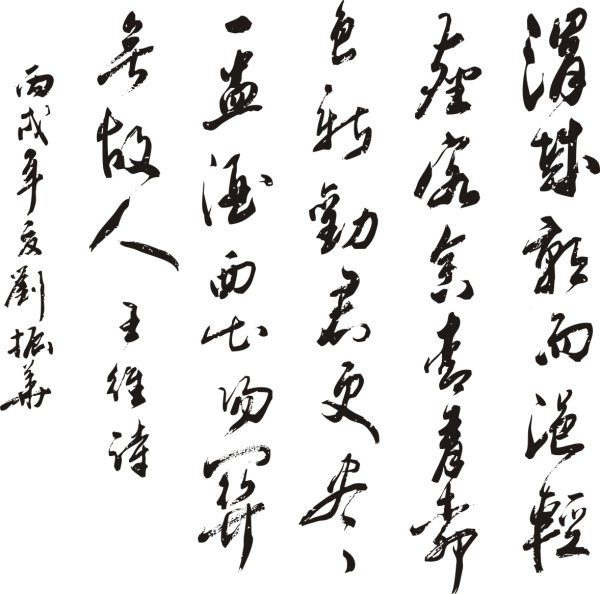 渭城朝雨浥輕
塵客舍青青柳
色新勸君更尽
一盃酒西出陽關
無故人 王維詩
丙戌年夏劉振華